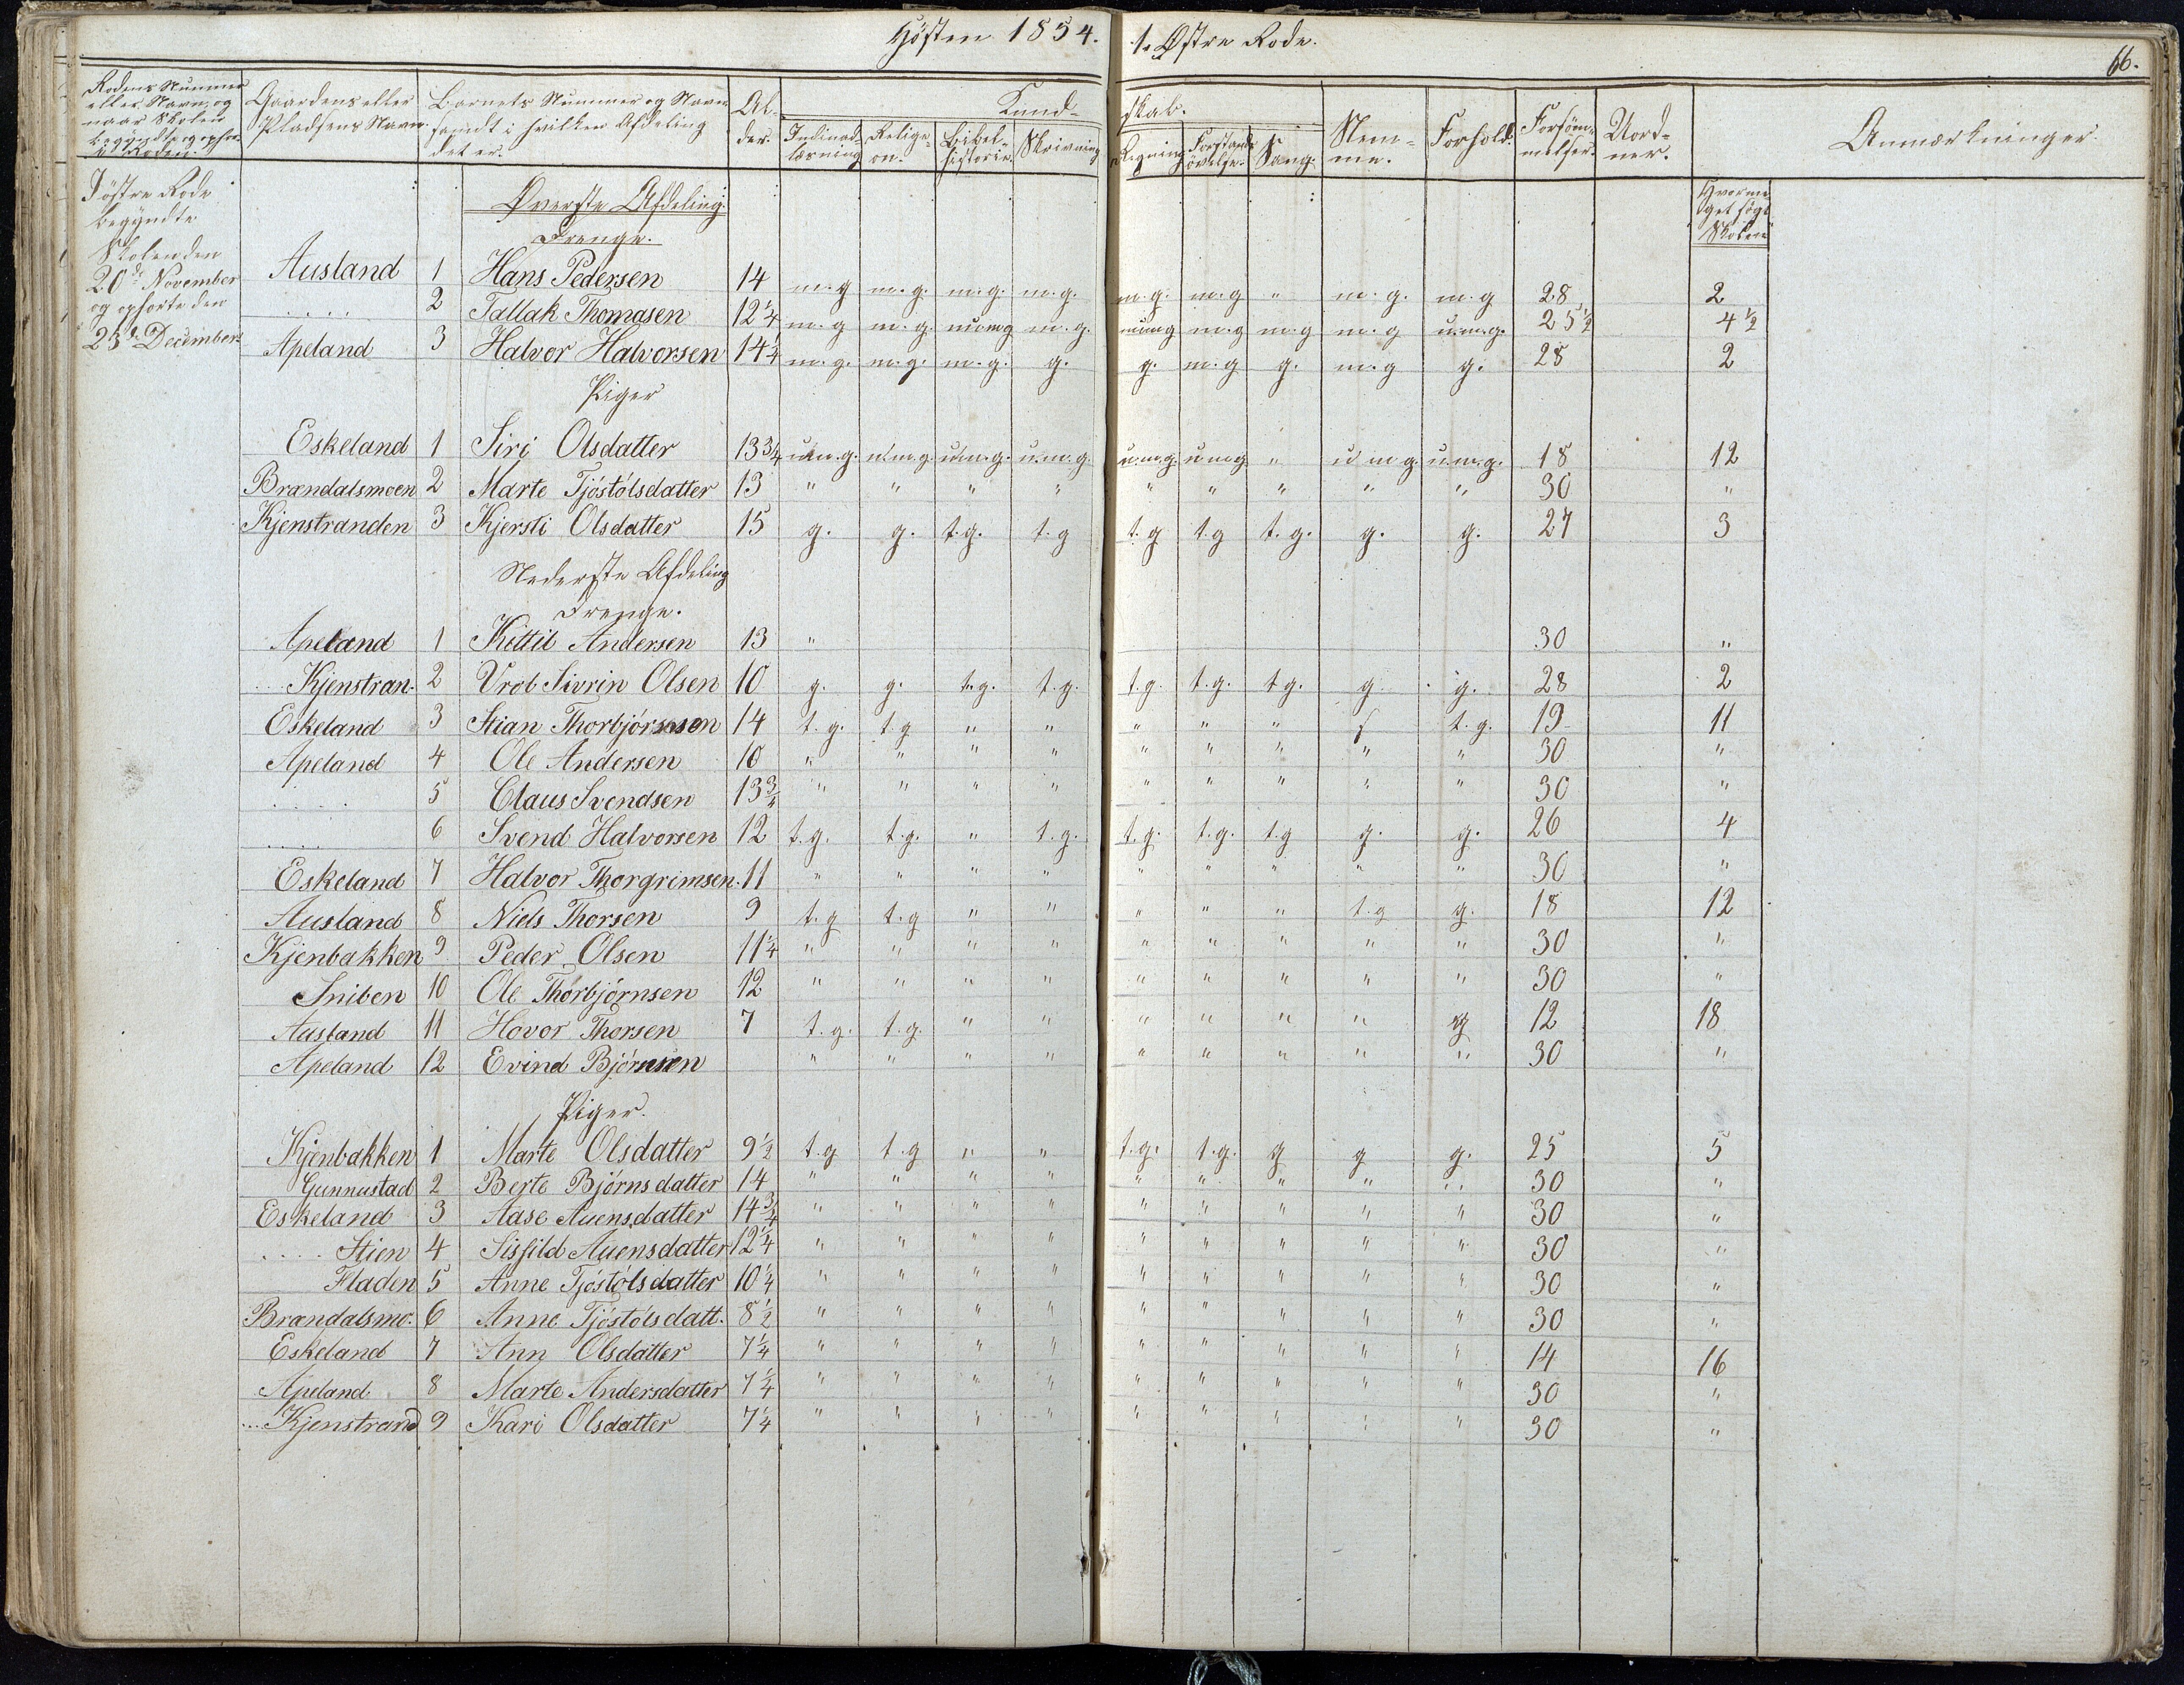 Høsten 1854. 1. Østre Rode.
66.
Rodens Nummer eller Navn, og naar Skolen begyndte og ophørte i Roden.
Gaardens eller Pladsens Navn.
Barnets Nummer og Navn samt i hvilken Afdeling det er.
Al-der.
Kund-skab.
Indenad-læsning
Religi-on.
Bibel-historie.
Skrivning
Regning
Forstands øvelse.
Sang.
Nem-me.
Forhold.
Forsøm-melser.
Uord-ner.
Anmærkninger
I østre Rode begyndte Skolen den 20de November og ophørte den 23de December.
Hvorme get søgt Skolen
Øverste Afdeling.
Drenge.
Ausland 1 Hans Pedersen 14 m.g m.g. m.g. m.g. m.g. m.g " m.g. m.g 28 2
..... 2 Tallak Thomasen 12 1/4 m.g m.g. m.g m.g. m.g m.g m.g u.m.g. 25 1/2 4 1/2
Apeland 3 Halvor Halvorsen 14 1/4 m.g. m.g. m.g. g. g. m.g g. m.g g. 28 2
Piger
Eskeland 1 Siri Olsdatter 13 3/4 u.m.g. u.m.g. u.m.g. u.m.g. u.m.g. u.m.g " u.m.g. u.m.g. 18 12
Brændalsmoen 2 Marte Tjöstólsdatter 13 " " " " " " " " " 30 "
Kjenstranden 3 Kjersti Olsdatter 15 g. g. t.g. t.g t.g t.g t.g. g. g. 27 3
Nederste Afdeling
Drenge.
Apeland 1 Kittil Andersen 13 " 30 "
...Kjenstran. 2 Vrob Sivrin Olsen 10 g. g. t.g. t.g. t.g. t.g. t.g. g. g. 28 2
Eskeland 3 Stian Thorbjörnsen 14 t.g. t.g " " " " " t.g. 19 11
Apeland 4 Ole Andersen 10 " " " " " " " " " 30 "
..... 5 Claus Svendsen 13 3/4 " " " " " " " " " 30 "
..... 6 Svend Halvorsen 12 t.g. t.g. " t.g. t.g. t.g. t.g g. g. 26 4
Eskeland 7 Halvor Thorgrimsen. 11 " " " " " " " " " 30 "
Ausland 8 Niels Thorsen 9 t.g t.g " " " " " t.g g. 18 12
Kjenbakken 9 Peder Olsen 11 1/4 " " " " " " " " " 30 "
Sniben 10 Ole Thorbjörnsen 12 " " " " " " " " " 30 "
Ausland 11 Hovor Thorsen 7 t.g. t.g. " " " " " " g 12 18
Apeland 12 Evind Björnsen " " " " " " " " " 30 "
Piger.
Kjenbakken 1 Marte Olsdatter 9 1/2 t.g t.g " " t.g. t.g. g g g. 25 5
Gunnustad 2 Berte Björnsdatter 14 " " " " " " " " " 30 "
Eskeland 3 Aase Auensdatter 14 3/4 " " " " " " " " " 30 "
.... Stien 4 Sisfild Auensdatter 12 1/4 " " " " " " " " " 30 "
Fladen 5 Anne Tjöstólsdatter 10 1/4 " " " " " " " " " 30 "
Brændalsmo. 6 Anne Tjöstólsdatt. 8 1/2 " " " " " " " " " 30 "
Eskeland 7 Ann Olsdatter 7 1/4 " " " " " " " " " 14 16
Apeland 8 Marte Andersdatter 7 1/4 " " " " " " " " " 30 "
...Kjenstrand 9 Kari Olsdatter 7 1/4 " " " " " " " " " 30 "